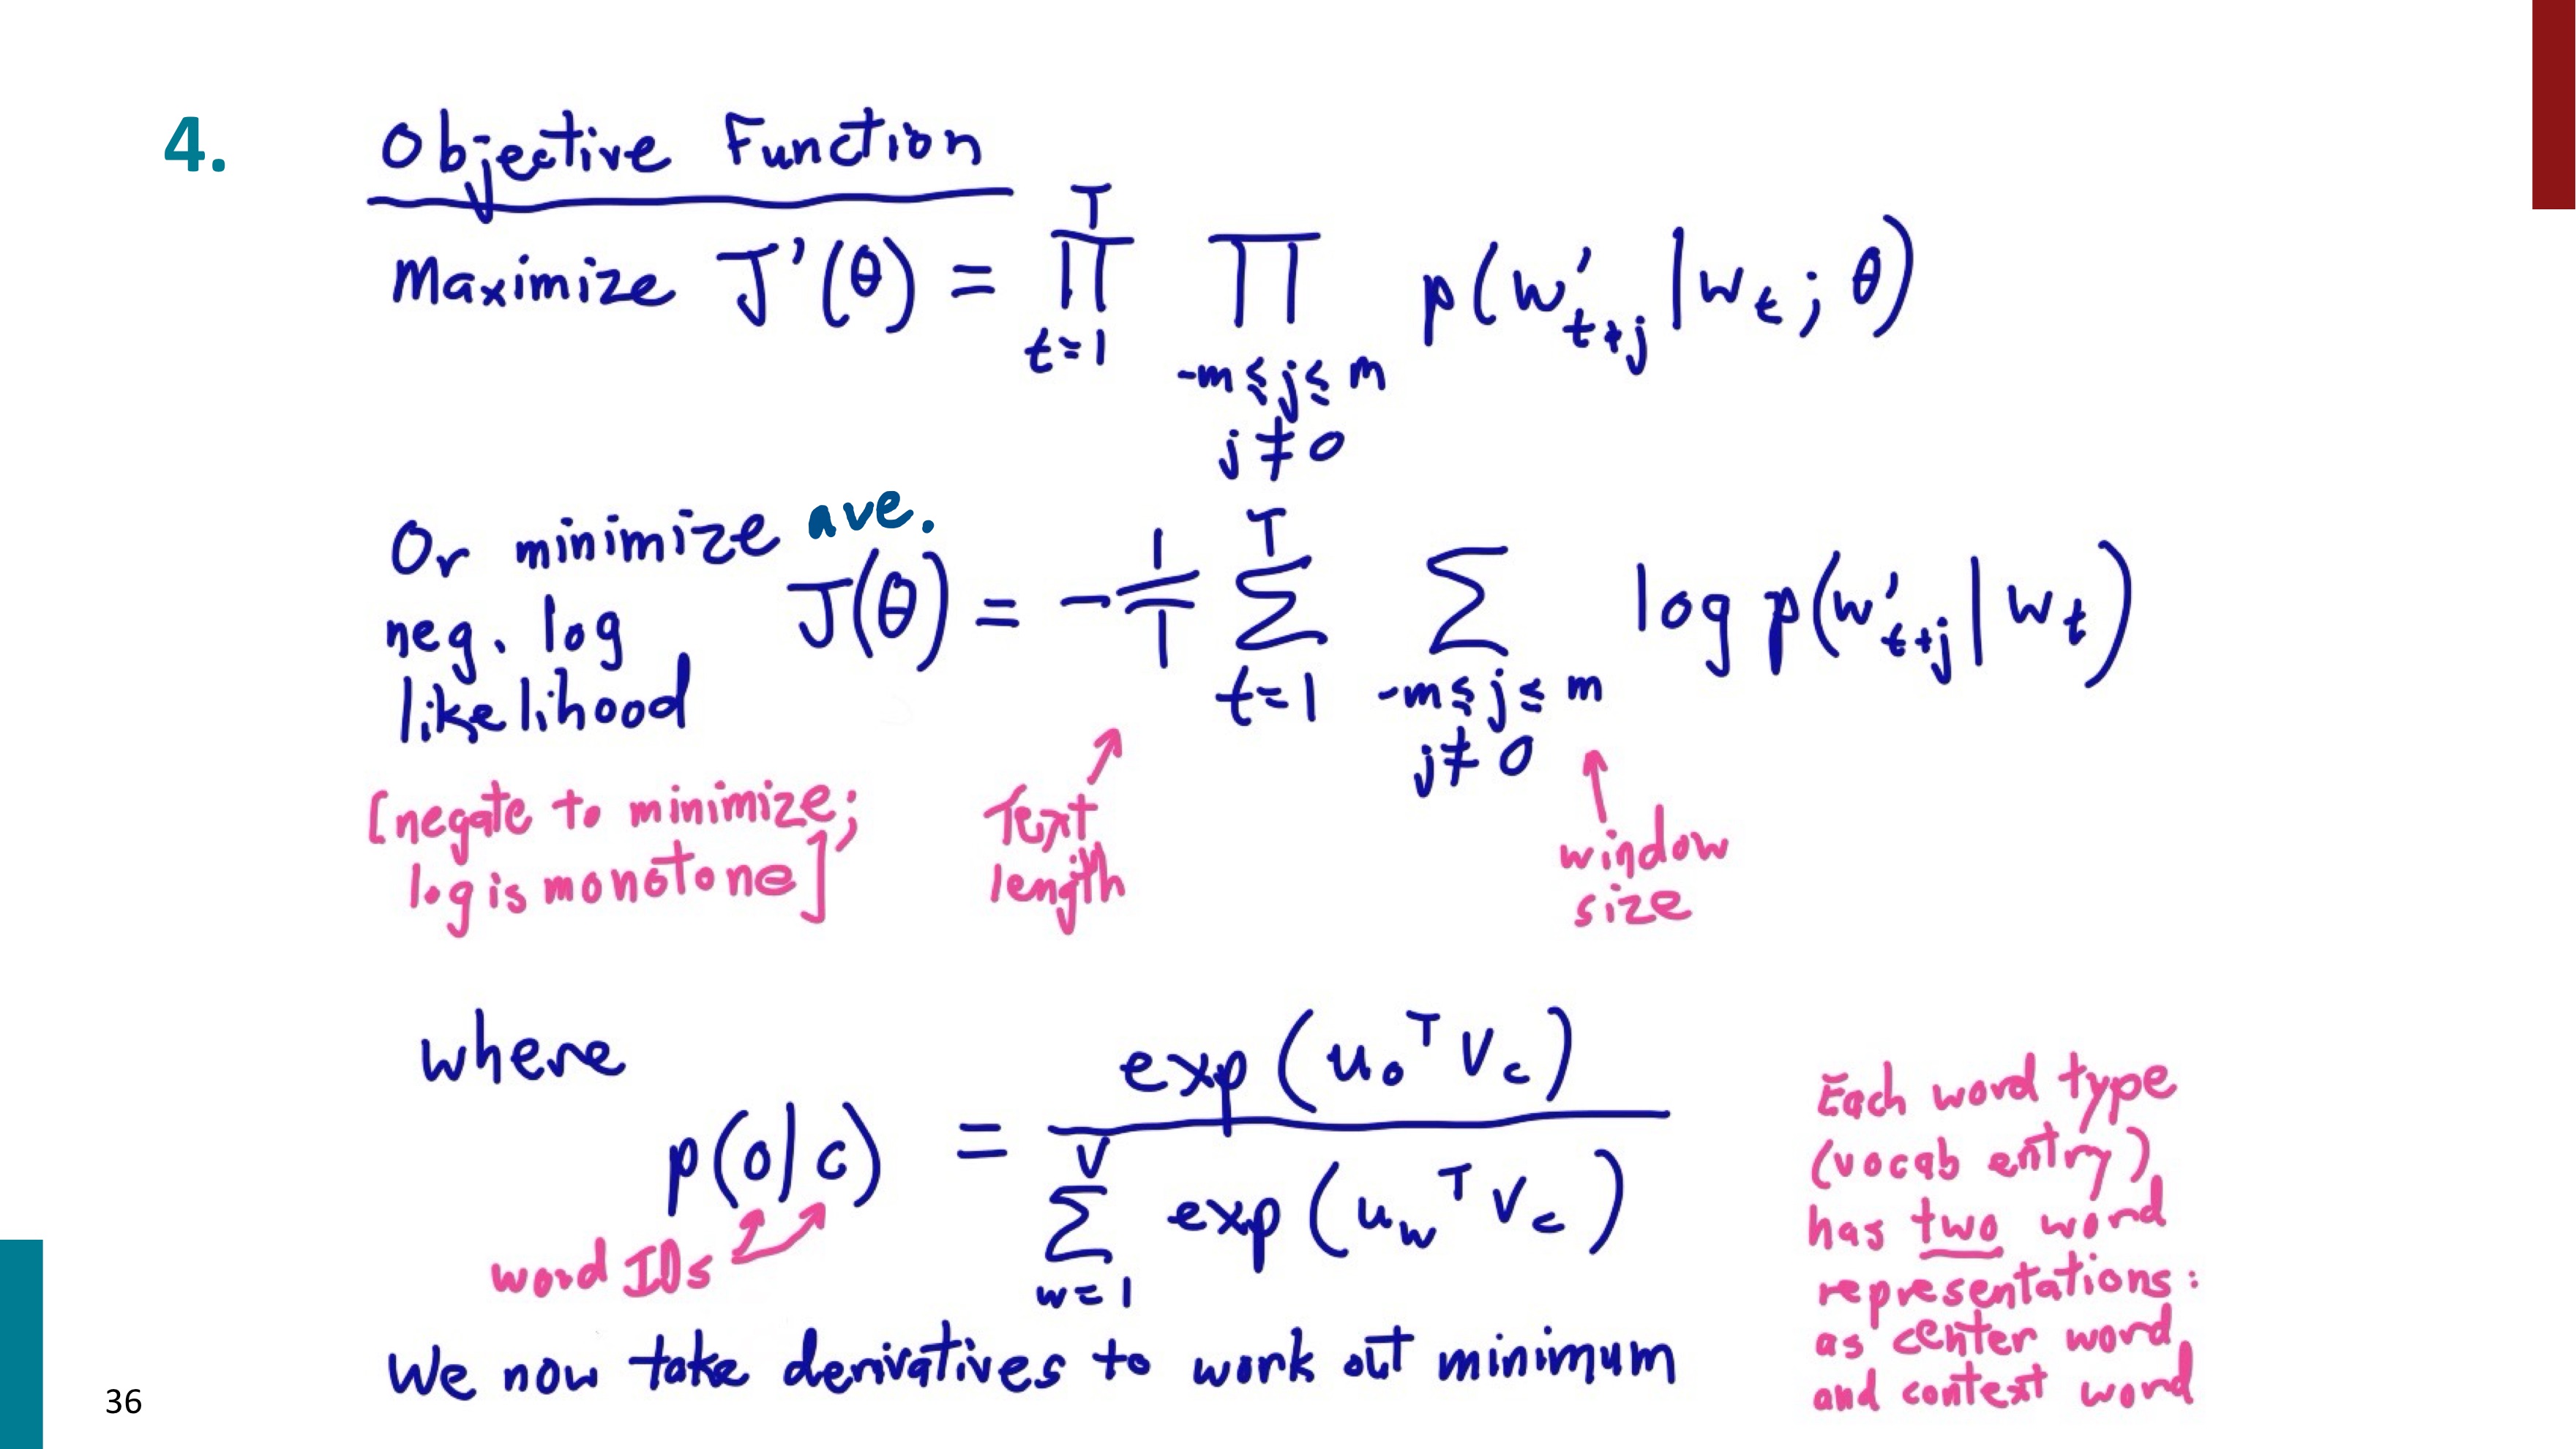 4.
Objective Function
Maximize J'(θ) = ∏_{t=1}^{T} ∏_{-m≤j≤m, j≠0} p(w'_{t+j} | w_t; θ)
Or minimize ave.
neg. log
likelihood
J(θ) = -1/T ∑_{t=1}^{T} ∑_{-m≤j≤m, j≠0} log p(w'_{t+j} | w_t)
[negate to minimize;
log is monotone]
Text
length
window
size
where
p(o|c) = exp(u_o^T v_c) / ∑_{w=1}^{V} exp(u_w^T v_c)
word IDs
Each word type
(vocab entry)
has two word
representations:
as center word
and context word
We now take derivatives to work out minimum
36